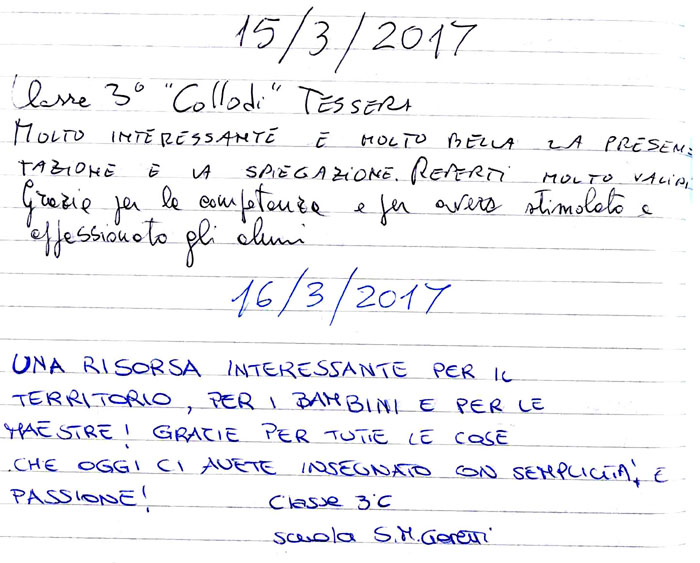 15/3/2017
Classe 3° "Collodi" TESSERA
MOLTO INTERESSANTE E MOLTO BELLA LA PRESEN=
TAZIONE E LA SPIEGAZIONE. REPERTI MOLTO VALIDI
Grazie per la competenza e per avere stimolato e
affessionato gli alunni
16/3/2017
UNA RISORSA INTERESSANTE PER IL
TERRITORIO, PER I BAMBINI E PER LE
MAESTRE! GRACIE PER TUTTE LE COSE
CHE OGGI CI AVETE INSEGNATO CON SEMPLICITÀ E
PASSIONE! Classe 3°C
scuola S.M. Goretti